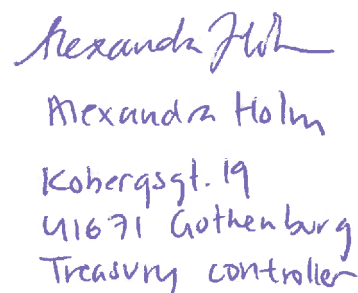 Alexandra Holm
Alexandra Holm
Kobergsgt. 19
41671 Gothenburg
Treasury controller